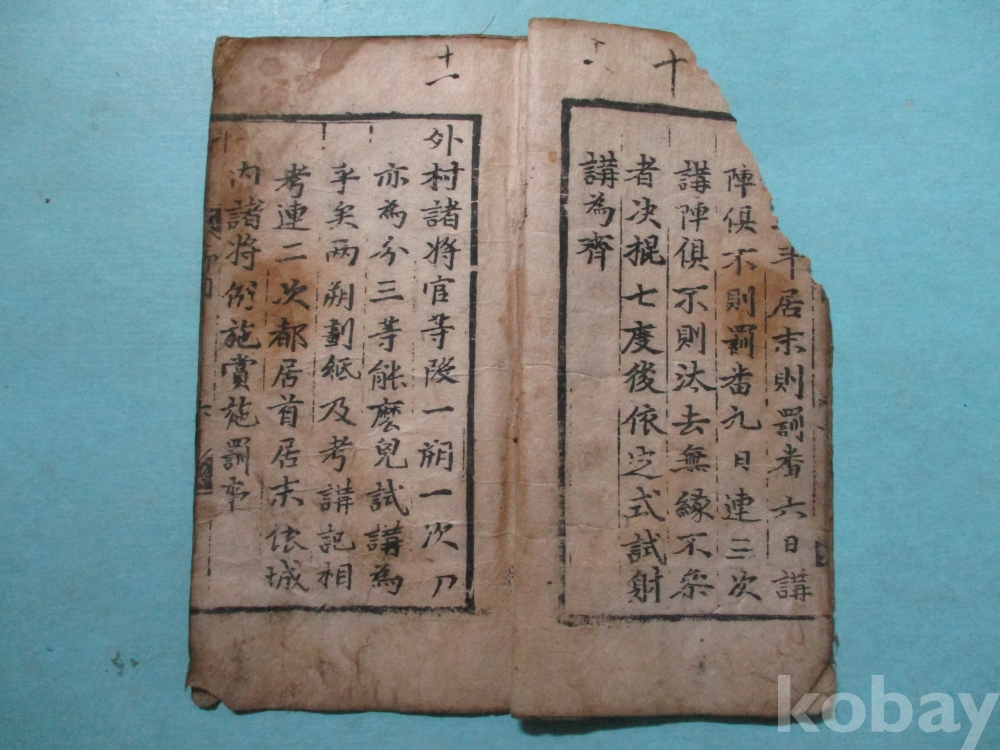 十
居末則罰番六日講
陣俱不則罰番九日連三次
講陣俱不則汰去無緣不叅
者决棍七度後依定式試射
講為齊
十一
外村諸將官等段一朔一次刀
亦為分三等能麽兒試講為
乎矣兩朔劃紙及考講記相
考連二次都居首居末依城
內諸將例施賞施罰事
kobay